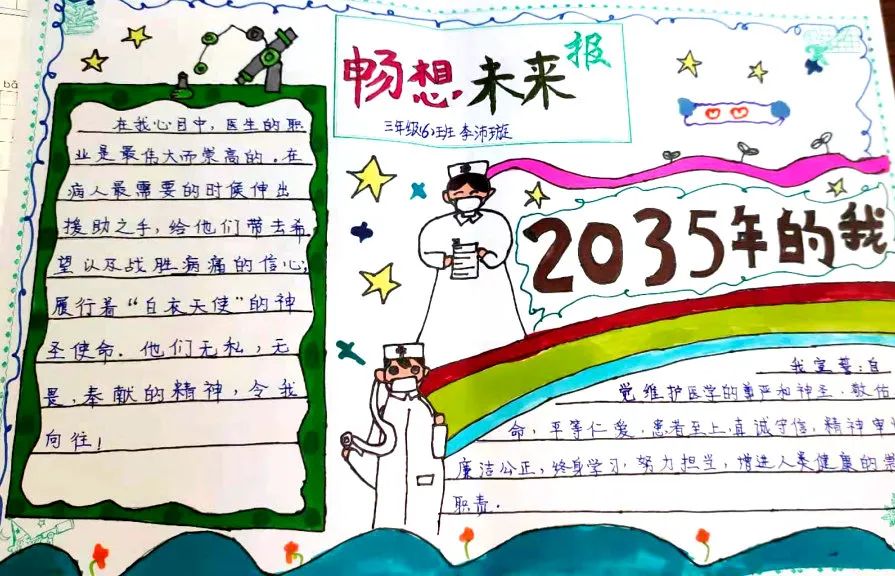 畅想未来报
三年级(6)班 李沛璇
在我心目中，医生的职
业是最伟大而崇高的。在
病人最需要的时候伸出
援助之手，给他们带去希
望以及战胜病痛的信心；
履行着“白衣天使”的神
圣使命．他们无私，无
畏，奉献的精神，令我
向往！
2035年的我
我宣誓：自
觉维护医学的尊严和神圣．敬佑
命，平等仁爱．患者至上．真诚守信，精神审
廉洁公正，终身学习，努力担当，增进人类健康的崇
职责．
bǎ